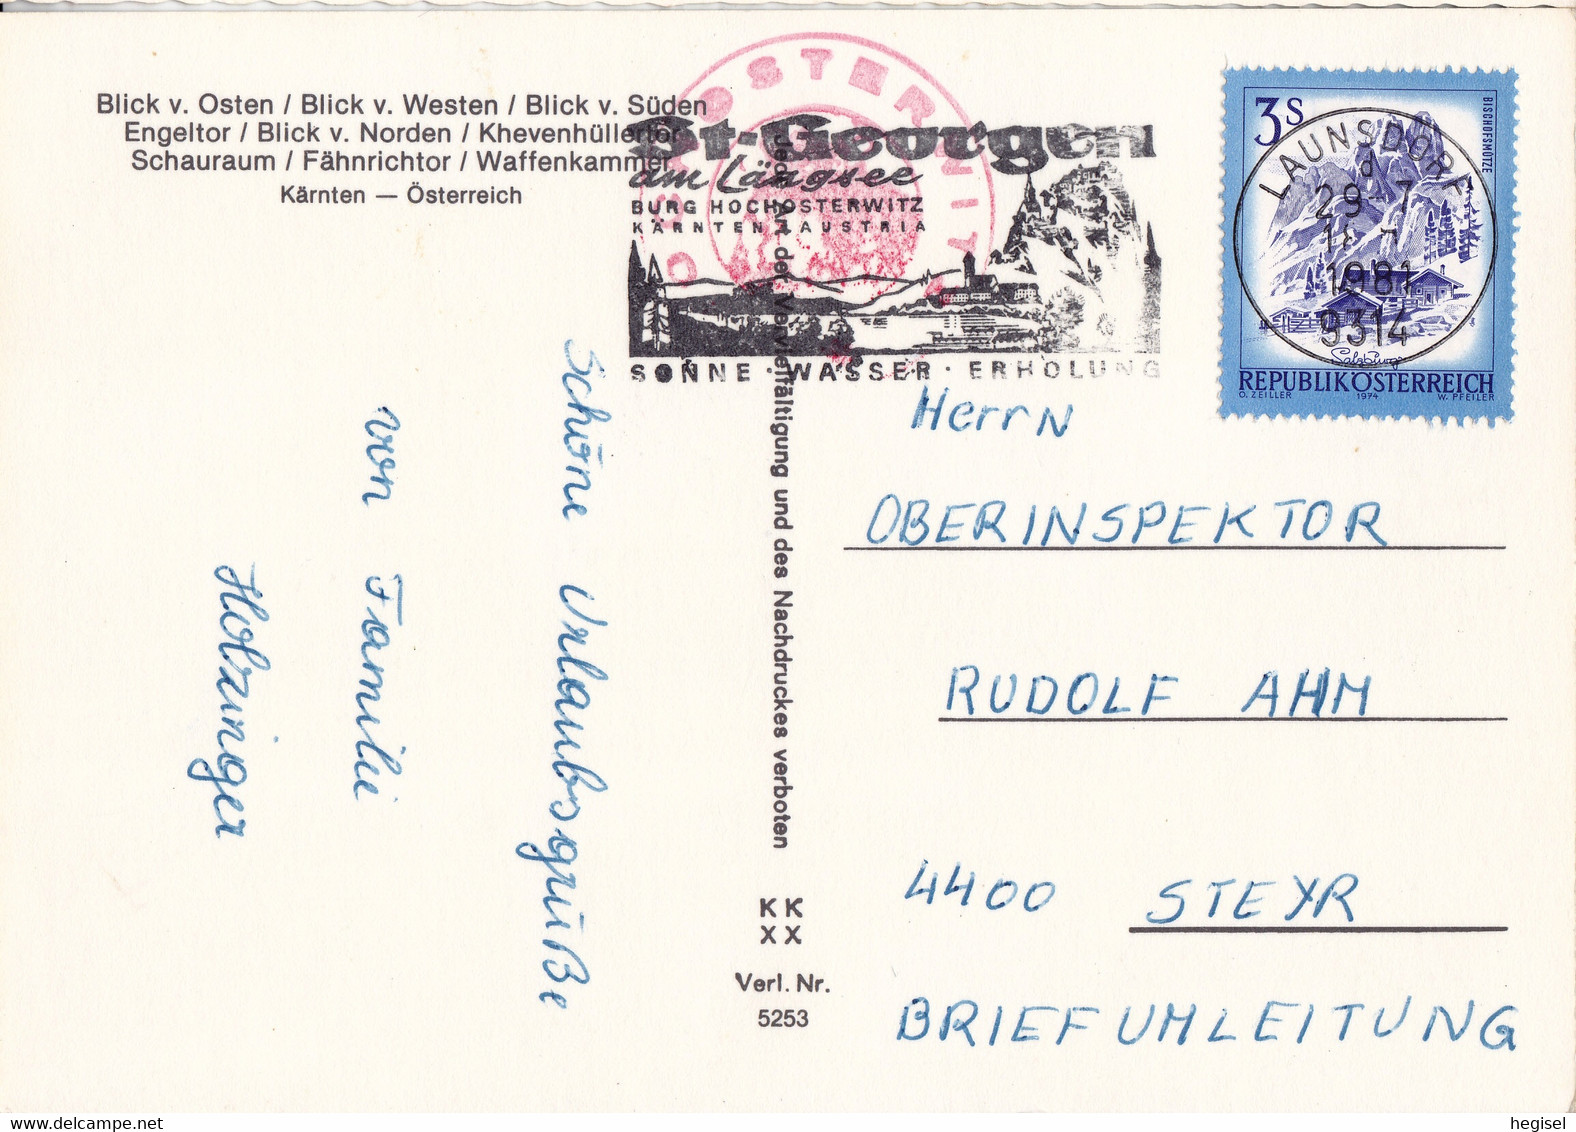 Blick v. Osten / Blick v. Westen / Blick v. Süden
Engeltor / Blick v. Norden / Khevenhüllertor
Schauraum / Fähnrichtor / Waffenkammer
Kärnten — Österreich
OSTERWITZ
St-Georgen
am Längsee
BURG HOCHOSTERWITZ
KÄRNTEN AUSTRIA
SONNE · WASSER · ERHOLUNG
3S
BISCHOFSMÜTZE
LAUNSDORF
d
29-7
1981
9314
Salzburg
REPUBLIK ÖSTERREICH
O. ZEILLER 1974 W. PFEILER
Schöne Urlaubsgrüße
von Familie
Holzinger
Jede Art der Vervielfältigung und des Nachdruckes verboten
KK
XX
Verl. Nr.
5253
Herrn
OBERINSPEKTOR
RUDOLF AHM
4400 STEYR
BRIEFUMLEITUNG
hegisel